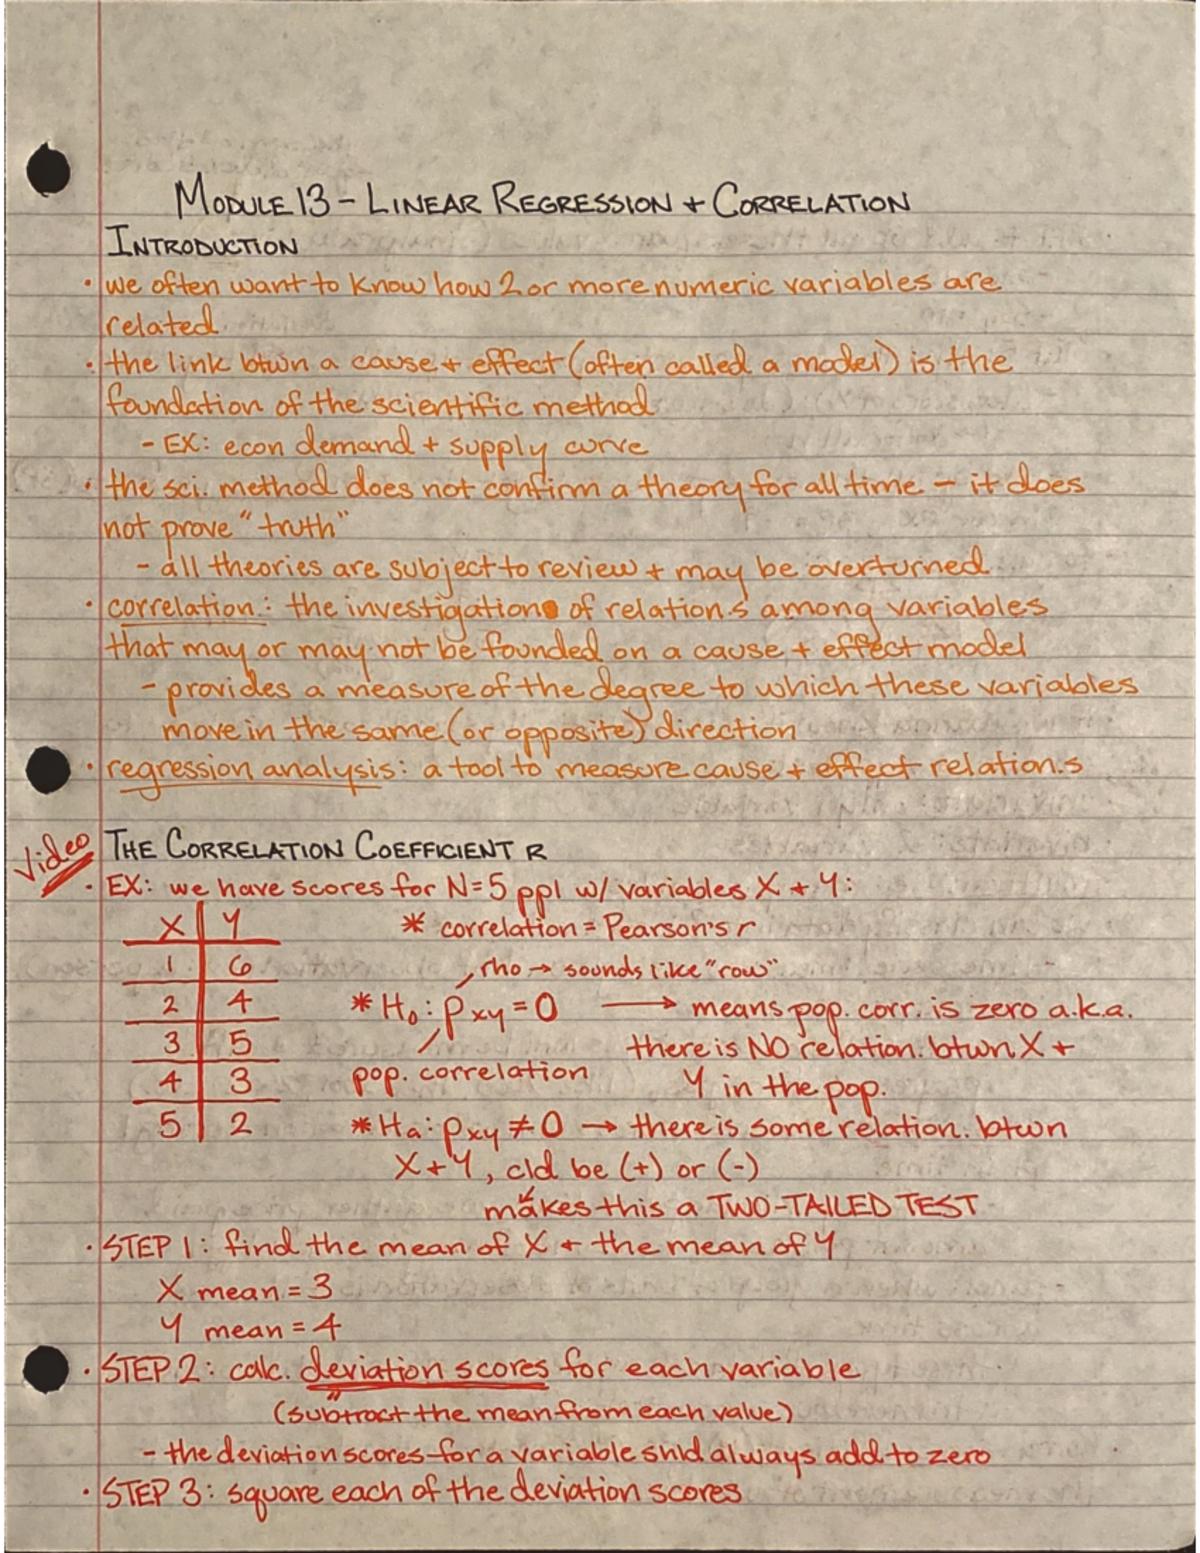 MODULE 13 - LINEAR REGRESSION + CORRELATION
INTRODUCTION
• we often want to know how 2 or more numeric variables are
related
• the link btwn a cause + effect (often called a model) is the
foundation of the scientific method
- EX: econ demand + supply curve
• the sci. method does not confirm a theory for all time - it does
not prove "truth"
- all theories are subject to review + may be overturned
• correlation: the investigation of relation.s among variables
that may or may not be founded on a cause + effect model
- provides a measure of the degree to which these variables
move in the same (or opposite) direction
• regression analysis: a tool to measure cause + effect relation.s
Video
THE CORRELATION COEFFICIENT R
• EX: we have scores for N=5 ppl w/ variables X + Y:
X Y
* correlation = Pearson's r
1 6
rho → sounds like "row"
2 4
* H₀: ρxy = 0 → means pop. corr. is zero a.k.a.
3 5
there is NO relation. btwn X +
4 3
pop. correlation
Y in the pop.
5 2
* Ha: ρxy ≠ 0 → there is some relation. btwn
X + Y, cld be (+) or (-)
makes this a TWO-TAILED TEST
• STEP 1: find the mean of X + the mean of Y
X mean = 3
Y mean = 4
• STEP 2: calc. deviation scores for each variable
(subtract the mean from each value)
- the deviation scores for a variable shld always add to zero
• STEP 3: square each of the deviation scores